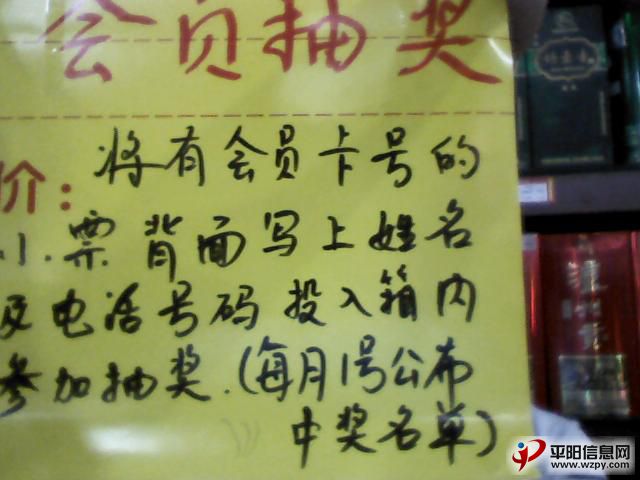 会员抽奖
价：
将有会员卡号的
小票背面写上姓名
及电话号码投入箱内
参加抽奖.(每月1号公布
中奖名单)
平阳信息网
www.wzpy.com